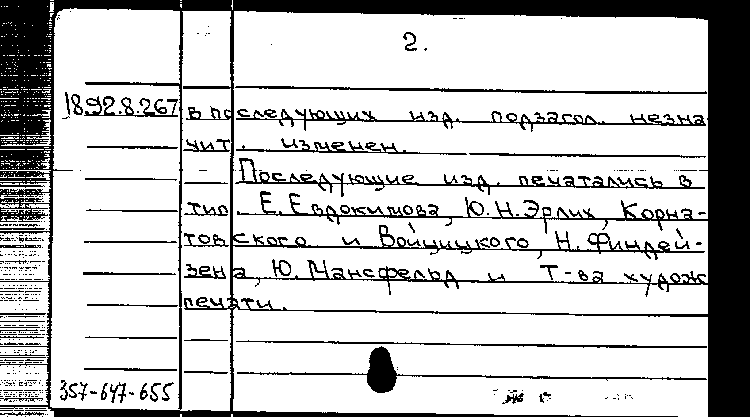 2.
18.92.8.267 в последующих изд. подзагол. незна
чит. изменен.
Последующие изд. печатались в
тип. Е. Евдокимова, Ю. Н. Эрлих, Корна-
товского и Войцицкого, Н. Финдей-
зена, Ю. Мансфельд и Т-ва худож
печати.
357-647-655